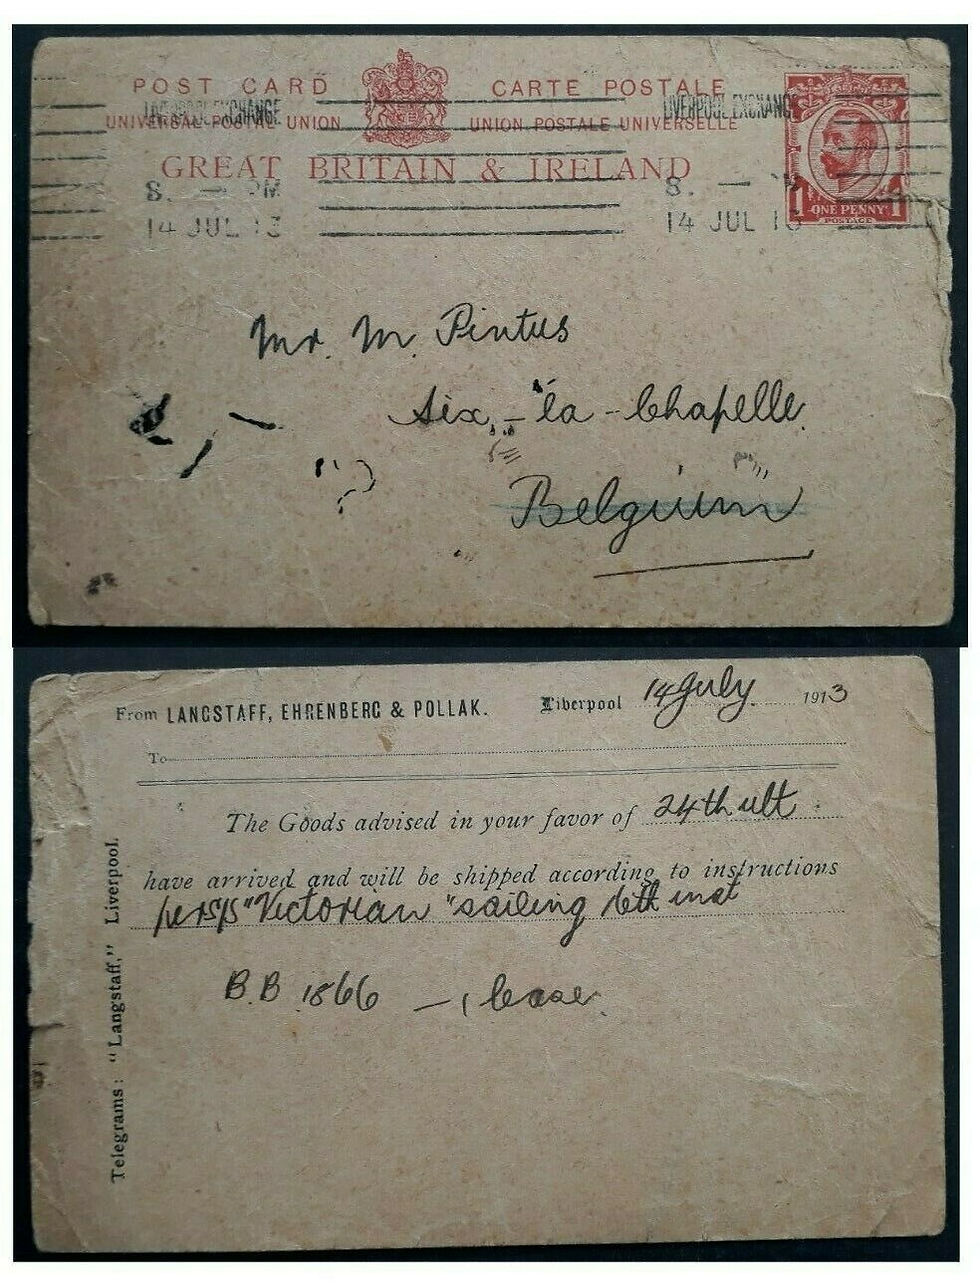 POST CARD CARTE POSTALE
LIVERPOOL EXCHANGE LIVERPOOL EXCHANGE
UNIVERSAL POSTAL UNION UNION POSTALE UNIVERSELLE
GREAT BRITAIN & IRELAND
8. — PM 8. — PM
14 JUL 13 14 JUL 13
1 ONE PENNY 1
POSTAGE
Mr. M. Pintus
Aix-la-Chapelle.
Belgium
From LANGSTAFF, EHRENBERG & POLLAK. Liverpool 14 July 1913
To
The Goods advised in your favor of 24th ult
have arrived and will be shipped according to instructions
per s/s "Victorian" sailing inst
B.B 1866 — 1 case.
Telegrams: "Langstaff," Liverpool.